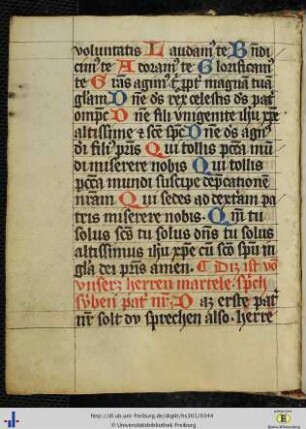 voluntatis Laudam⁹ te Bn̄di
cim⁹ te Adoram⁹ te Glorificam⁹
te Grās agim⁹ t̄ ꝓpt̄ magnā tuā
gl̄am Dn̄e ds̄ rex celestis ds̄ pat̄
omp̄c Dn̄e fili vnigenite ih̄u xp̄e
altissime ⁊ sc̄e sp̄c Dn̄e ds̄ agn⁹
di fili⁹ p̄ris Qui tollis pcc̄a mū
di miserere nobis Qui tollis
pcc̄a mundi suscipe dep̄catione
nr̄am Qui sedes ad dext̄am pa
tris miserere nobis. Qm̄ tu
solus sc̄s tu solus dn̄s tu solus
altissimus ih̄u xp̄e cū sc̄o sp̄u in
gl̄a dei p̄ris amen. Diz ist vō
vnserz herren martele. sp̄ch
syben pat̄ nr̄. Daz erste pat̄
nr̄ solt dv sprechen also. herre
http://dl.ub.uni-freiburg.de/diglit/hs301/0344
© Universitätsbibliothek Freiburg